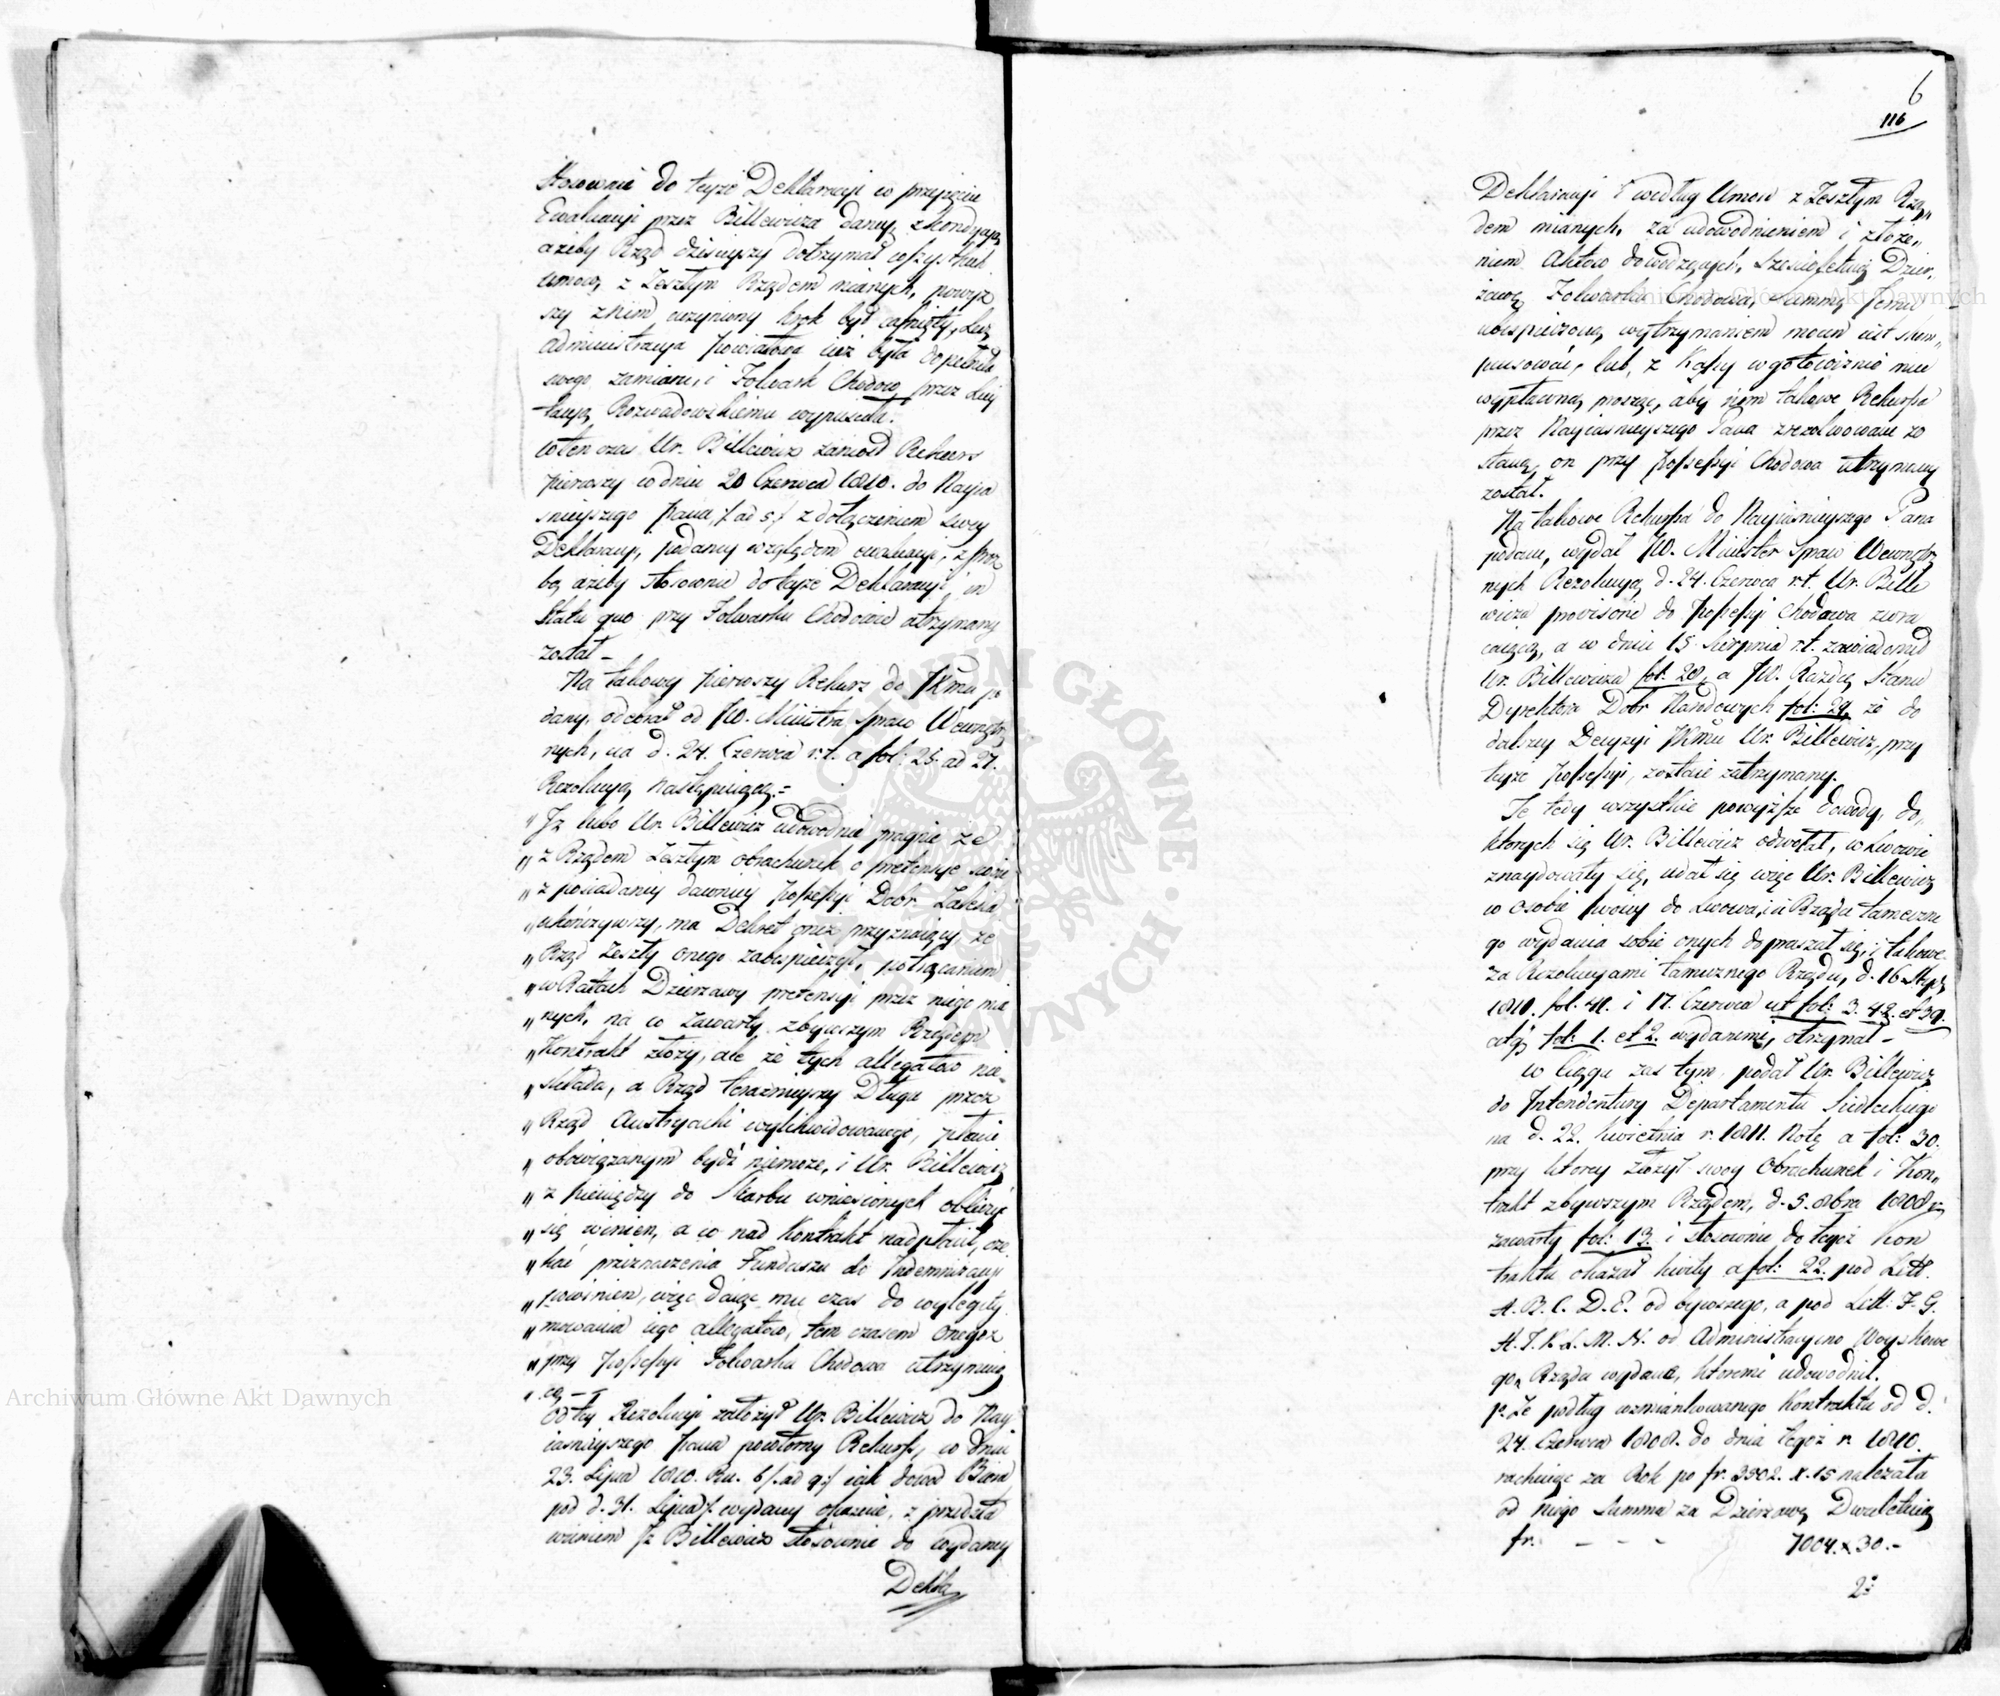 Stosownie do teyże Deklaracyi w przyjęciu
Ewaluacyi przez Billewicza daney, z kondycyą
ażeby Rząd dzisieyszy dotrzymał wszystkich
umow z Zeszłym Rządem mianych, powyż
szy z nim uczyniony krok był cofnięty, lecz
Administracya Powiatowa iuż była dopełniła
swego zamiaru, i Folwark Chodow przez Licy
tacyą Rozwadowskiemu wypuściła.
w ten czas Ur. Billewicz zaniosł Rekurs
pierwszy w dniu 20 Czerwca 1810. do Nayia
śnieyszego Pana, /: ad 5 :/ z dołączeniem swey
Deklaracyi, podaney względem ewaluacyi, z proź
bą ażeby stosownie do teyże Deklaracyi, in
Statu quo przy Folwarku Chodowie utrzymany
został _
Na takowy pierwszy Rekurs do JKMci po
dany, odebrał od JW. Ministra Spraw Wewnętrz
nych, na d. 24. Czerwca r. t. a fol: 25. ad 27.
Rezolucyą następuiącą. =
„ Iż lubo Ur. Billewicz udowodnić pragnie że
„ z Rządem Zeszłym obrachunek o pretensye swoie
„ z posiadaney dawniey Possessyi Dobr
„ ukończywszy, ma Dekret oneż przyznaiący, że
„ Rząd Zeszły onego zabespieczył, potrąceniem
„ w Ratach Dzierżawy pretensyi przez niego mia
„ nych, na co zawarty z bywszym Rządem
„ Kontrakt złoży, ale że tych allegatow nie
„ składa, a Rząd teraźnieyszy Długu przez
„ Rząd Austryacki wylikwidowanego, płacić
„ obowiązanym bydź niemoże, i Ur. Billewicz
„ z pieniędzy do Skarbu wniesionych obliczyć
„ się winien, a co nad Kontrakt nadpłacił, cze
„ kać przeznaczenia Funduszu do Indemnizacyi
„ powinien, więc daiąc mu czas do wylegity
„ mowania iego allegatow, tem czasem onegoż
„ przy Possessyi Folwarku Chodowa utrzymuią
„ cą _
Od tey Rezolucyi założył Ur. Billewicz do Nay
iaśnieyszego Pana powtorny Rekurs, w dniu
23. Lipca 1810. /: ad 9 :/ iak dowod Biora
pod d. 31. Lipca wydany okazuie, z przedsta
wieniem Iż Billewicz stosownie do wydaney
Dekla
6
116
Deklaracyi i według Umow z Zeszłym Rzą„
dem mianych, za udowodnieniem i złoże„
niem Aktow dowodzących, Sześcioletnią Dzier„
żawę Folwarku Chodowa, Summę iemu
ubespieczoną, wytrzymaniem mocen iest skom„
pensować, lub, z Kassy w gotowiznie mu
wypłaconą, prosząc, aby nim takowe Rekursa
przez Nayiaśnieyszego Pana zrezolwowane zo
staną, on przy Possessyi Chodowa utrzymany
został.
Na takowe Rekursa do Nayiaśnieyszego Pana
podane, wydał JW. Minister Spraw Wewnętrz
nych Rezolucyą d. 24. Czerwca r. t. Ur. Bille
wicza provisorie do Possessyi Chodowa zwra
caiącą, a w dniu 15 Sierpnia r. t. zawiadomił
Ur. Billewicza fol: 28, a JW. Radzcę Stanu
Dyrektora Dobr Narodowych fol: 29. że do
dalszey Decyzyi JKMci Ur. Billewicz, przy
teyże Possessyi, zostaie zatrzymany.
Że tedy wszystkie powyższe dowody, do„
ktorych się Ur. Billewicz odwołał, w Lwowie
znaydowały się, udał się więc Ur. Billewicz
w osobie swoiey do Lwowa, i u Rządu tameczne
go wydania sobie onych dopraszał się, i takowe
za Rezolucyami tamecznego Rządu, d. 16 Stycz
1810. fol. 41. i 17. Czerwca ut fol: 3. 42. et 39.
fol: 1. et 2. wydanemi, otrzymał _
w Ciągu zaś tym podał Ur. Billewicz
do Intendentury Departamentu Siedleckiego
na d. 22. Kwietnia r. 1811. Notę a fol: 30.
przy ktorey złożył swoy Obrachunek i Kon„
trakt z bywszym Rządem, d. 5. 8bra 1808
zawarty fol: 13. i stosownie do tegoż Kon
traktu okazał kwity a fol: 22. pod Litt.
A. B. C. D. E. od bywszego, a pod Litt: F. G.
H. I. K. L. M. N. od Administracyino Woyskowe
go, Rządu wydane, ktoremi udowodnił.
1° Że podług wzmiankowanego Kontraktu od d.
24. Czerwca 1808. do dnia tegoż r. 1810.
rachuiąc za Rok po fr. 3502. x. 15 należała
od niego Summa za Dzierżawę Dwuletnią
fr. - - - 7004. x 30. -
2°